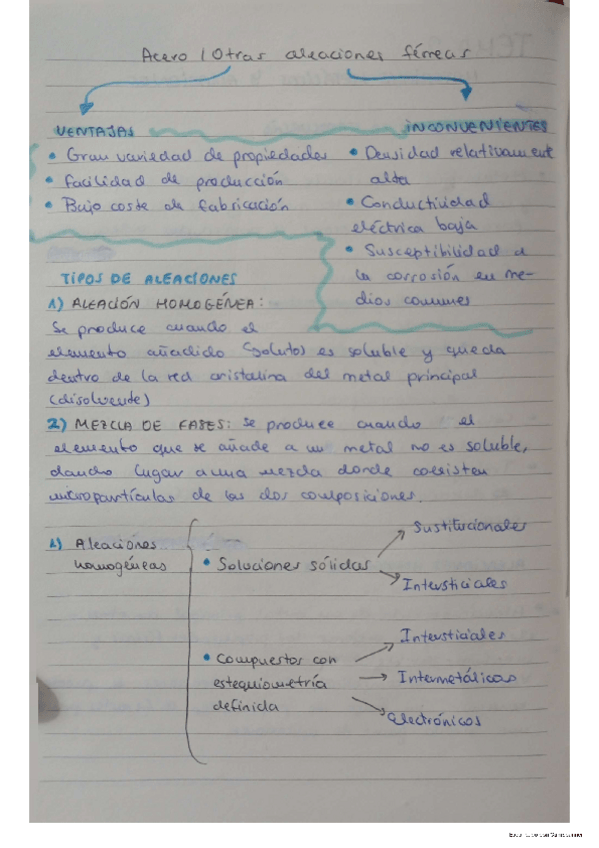 Acero / Otras aleaciones férreas
VENTAJAS
• Gran variedad de propiedades
• Facilidad de producción
• Bajo coste de fabricación
INCONVENIENTES
• Densidad relativamente
alta
• Conductividad
eléctrica baja
• Susceptibilidad a
la corrosión en me-
dios comunes
TIPOS DE ALEACIONES
1) ALEACIÓN HOMOGÉNEA:
Se produce cuando el
elemento añadido (soluto) es soluble y queda
dentro de la red cristalina del metal principal
(disolvente)
2) MEZCLA DE FASES: se produce cuando el
elemento que se añade a un metal no es soluble,
dando lugar a una mezcla donde coexisten
micropartículas de las dos composiciones.
1) Aleaciones
homogéneas
• Soluciones sólidas
Sustitucionales
Intersticiales
• Compuestos con
estequiometría
definida
Intersticiales
Intermetálicas
electrónicos